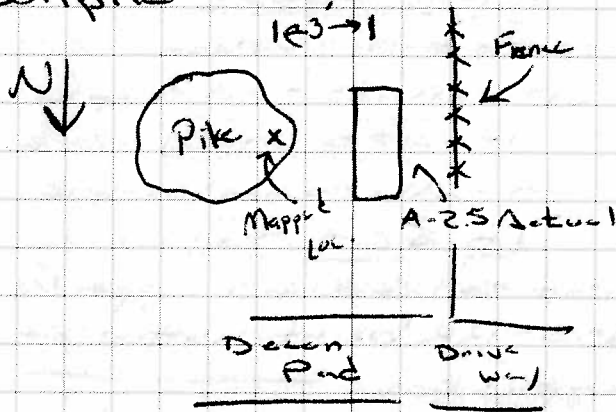 1←3'→1
N
Fence
Pile x
Mapped
Loc.
A-25 Actual
Decon
Pad
Drive
way